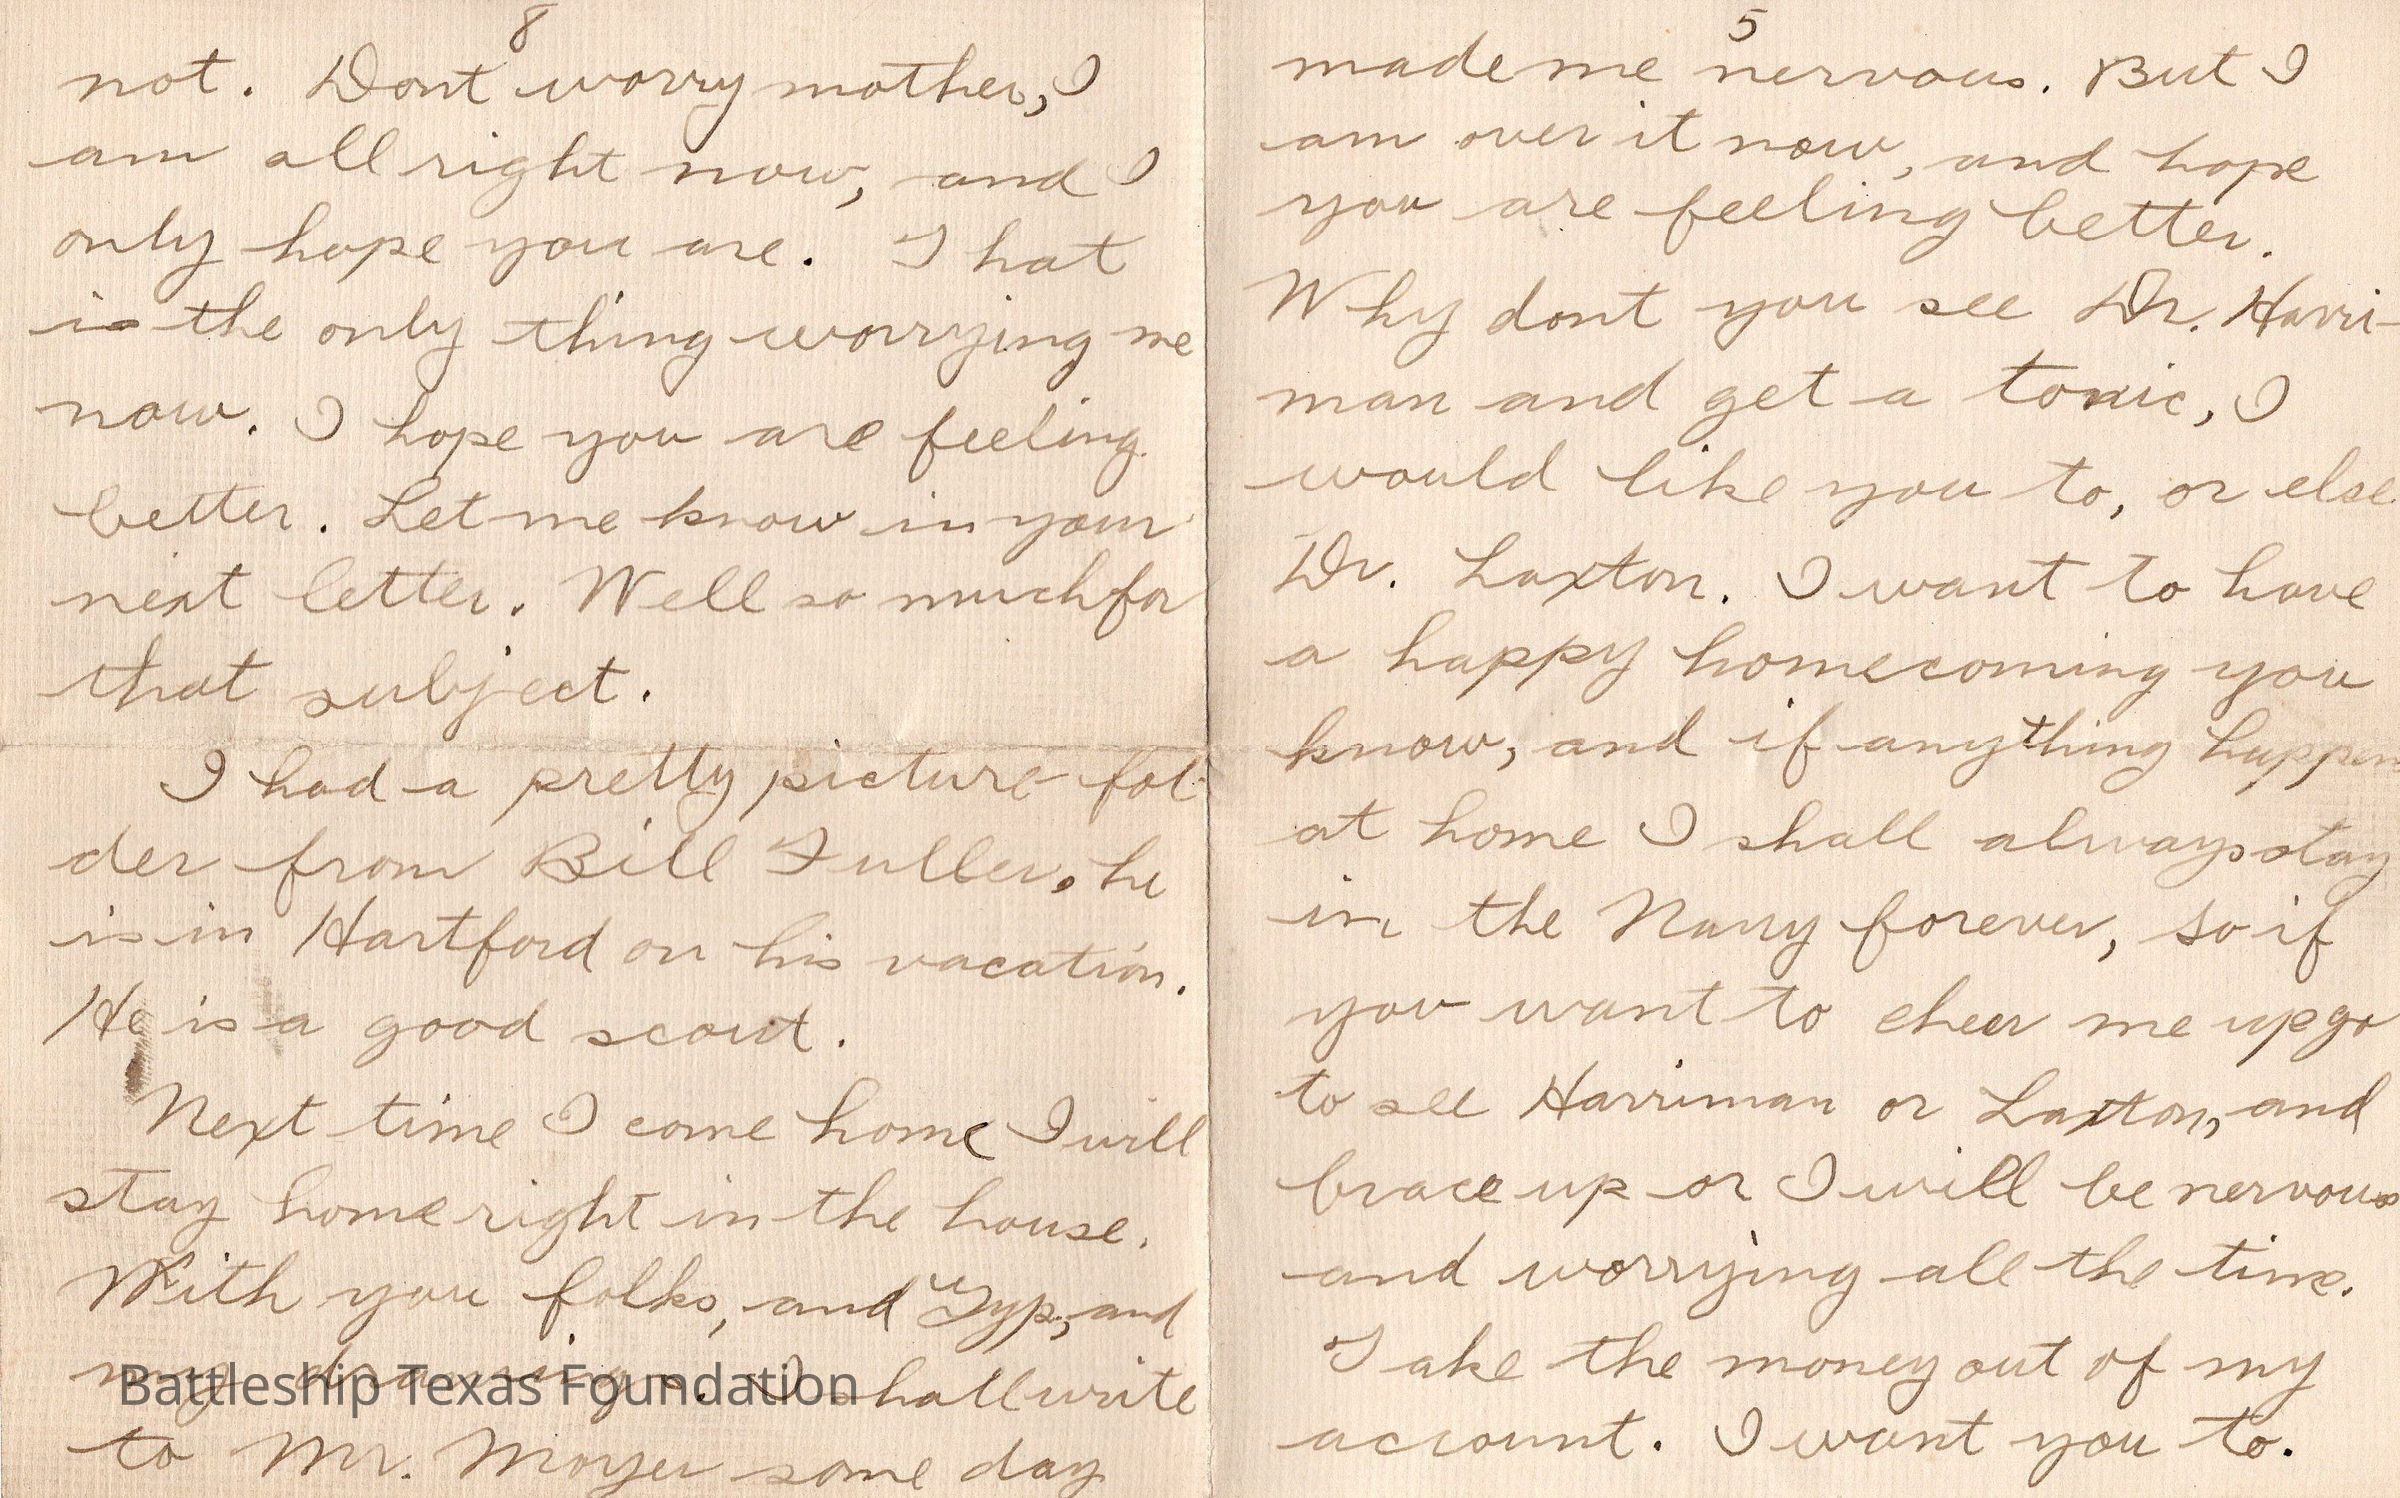 8
not. Dont worry mother, I
am all right now, and I
only hope you are. That
is the only thing worrying me
now. I hope you are feeling
better. Let me know in your
next letter. Well so much for
that subject.
I had a pretty picture fol-
der from Bill Fuller, he
is in Hartford on his vacation.
He is a good scout.
Next time I come home I will
stay home right in the house.
With you folks, and "Gyp", and
my drawings. I shall write
to Mr. Moyer some day
Battleship Texas Foundation
5
made me nervous. But I
am over it now, and hope
you are feeling better.
Why dont you see Dr. Harri-
man and get a tonic, I
would like you to, or else
Dr. Laxton. I want to have
a happy homecoming you
know, and if anything happen
at home I shall always stay
in the Navy forever, so if
you want to cheer me up go
to see Harriman or Laxton, and
brace up or I will be nervous
and worrying all the time.
Take the money out of my
account. I want you to.